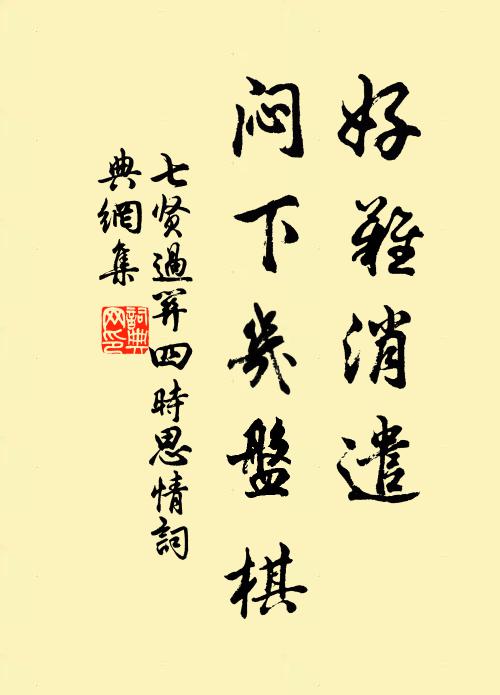 好難消遣
闷下幾盤棋
七贤過關四時思情詞
典網集
詞典
网印